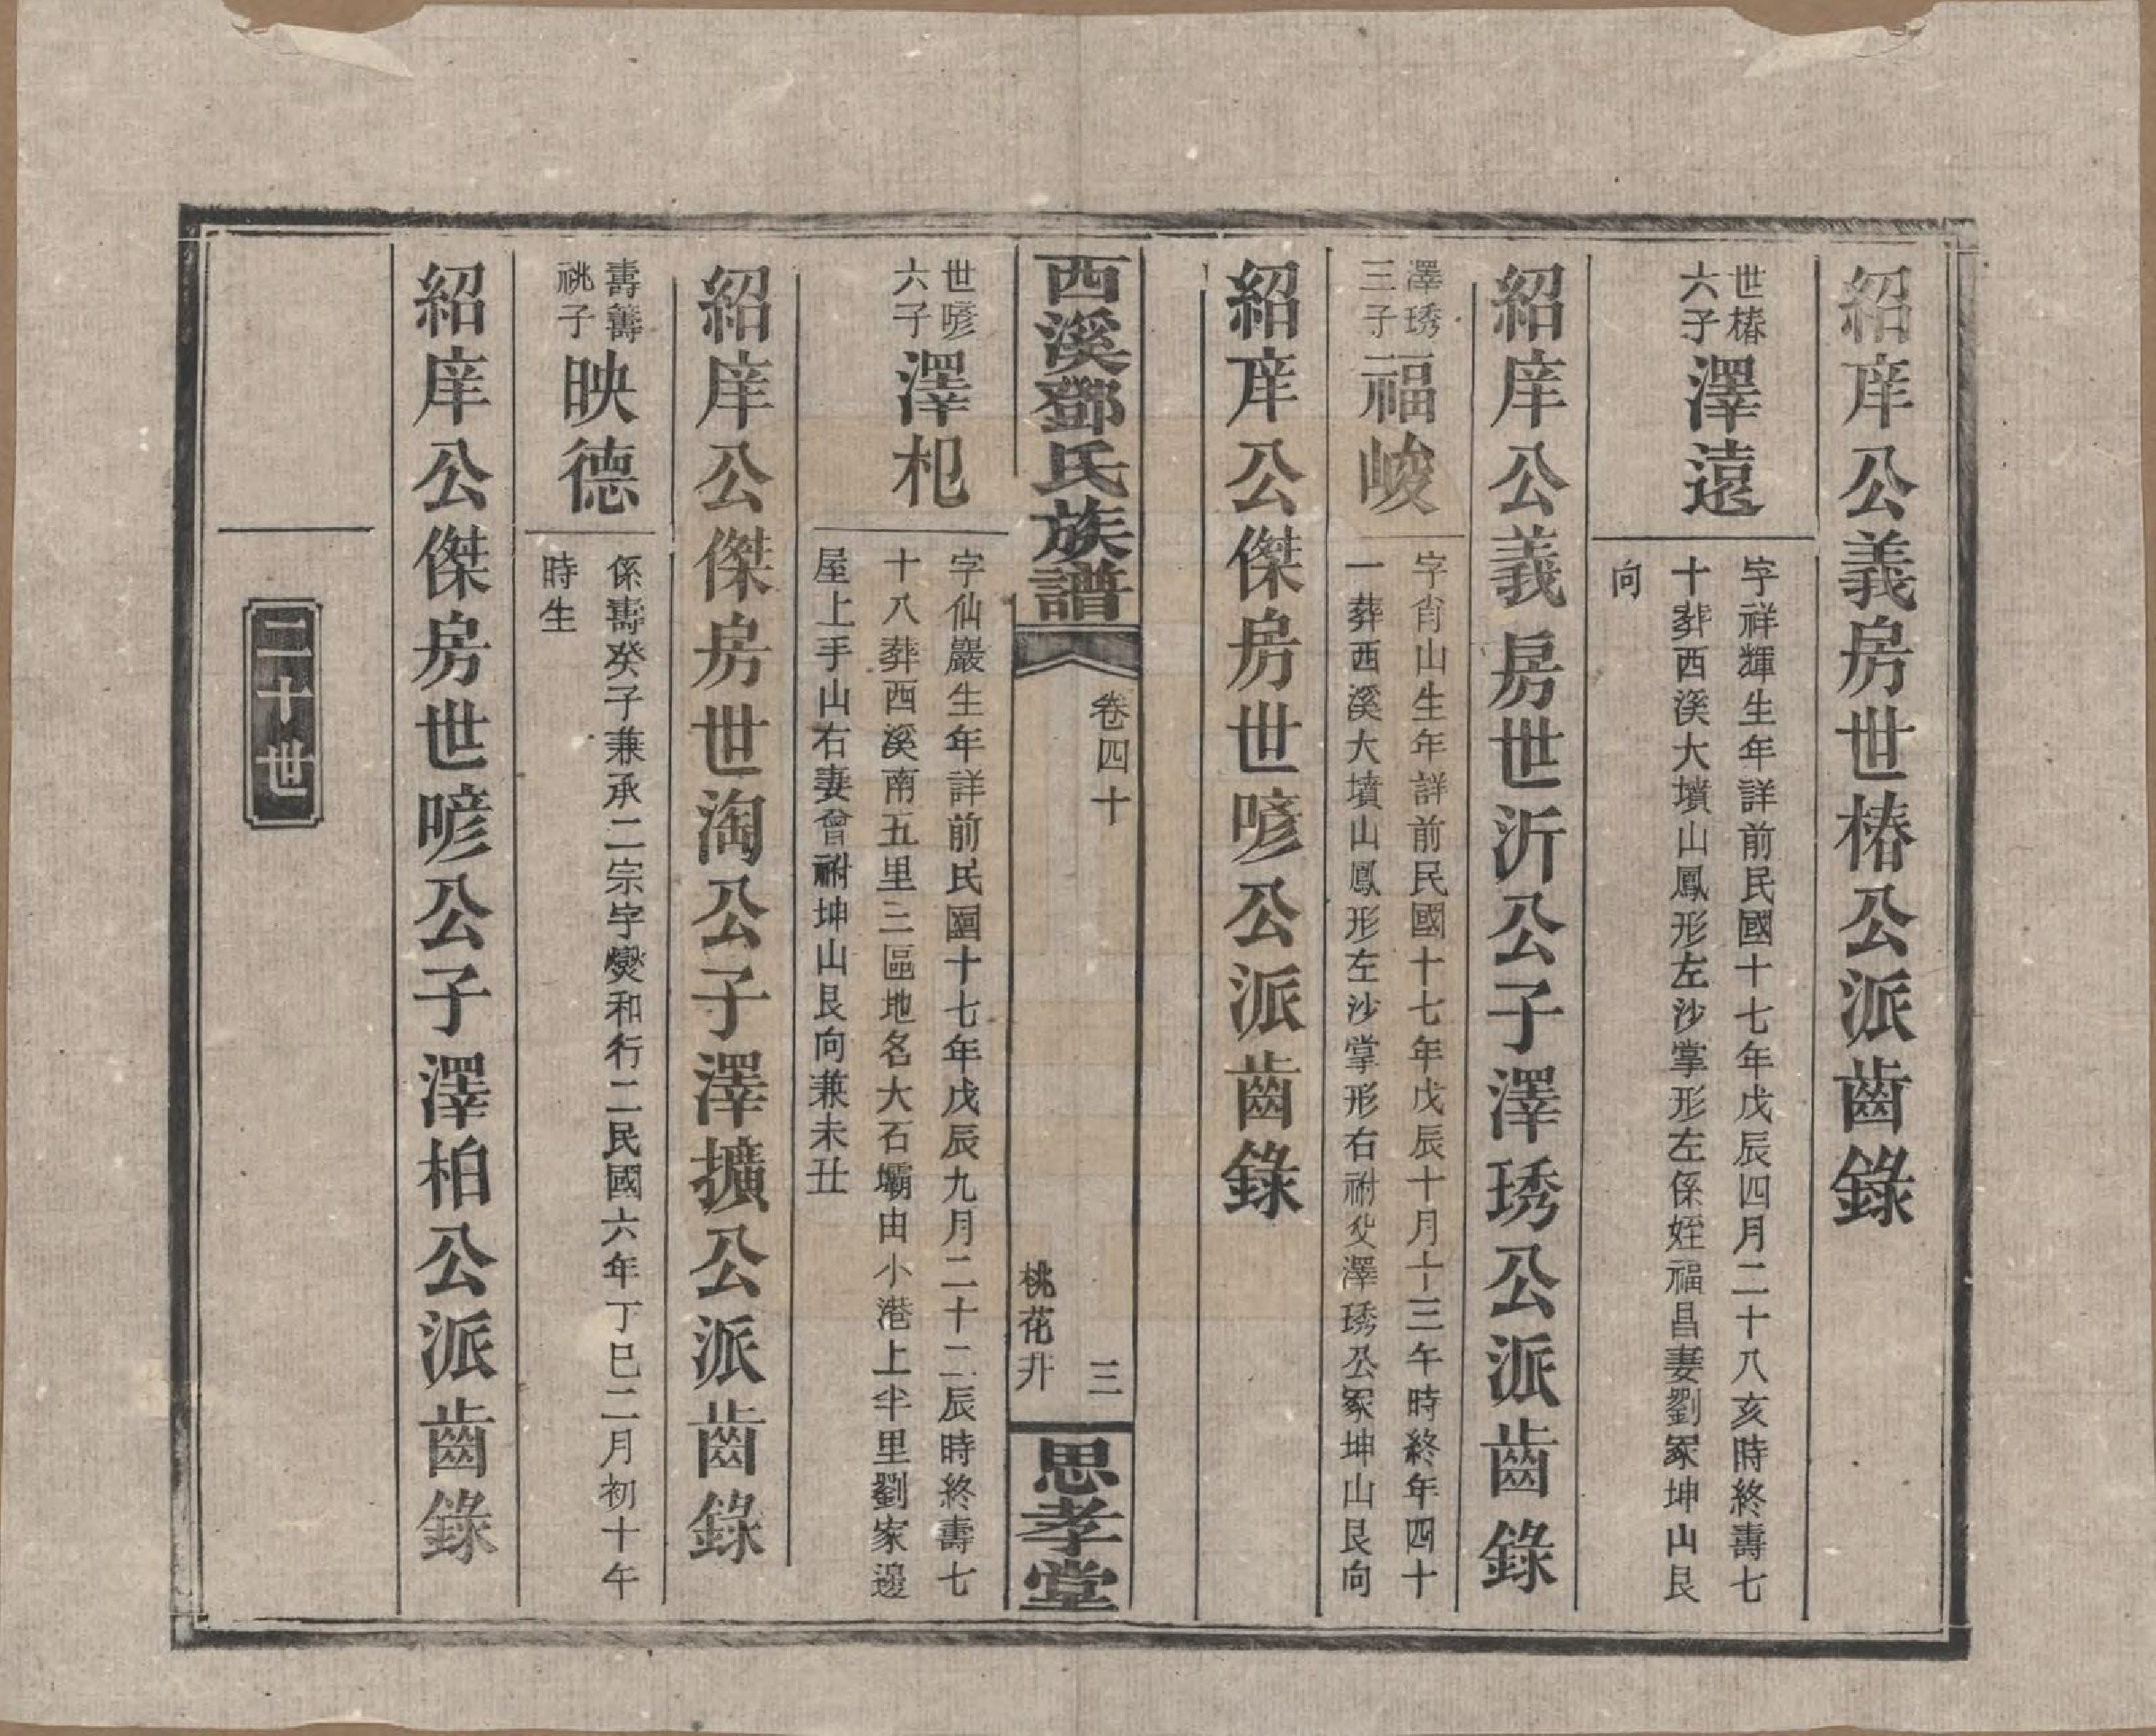 紹庠公義房世椿公派齒錄
世椿
六子
澤遠
字祥輝生年詳前民國十七年戊辰四月二十八亥時終壽七
十葬西溪大墳山鳳形左沙掌形左係姪福昌妻劉冢坤山艮
向
紹庠公義房世沂公子澤琇公派齒錄
澤琇
三子
福峻
字肖山生年詳前民國十七年戊辰十月十三午時終年四十
一葬西溪大墳山鳳形左沙掌形右祔父澤琇公冢坤山艮向
紹庠公傑房世喭公派齒錄
西溪鄧氏族譜
卷四十
三
桃花廾
思孝堂
世喭
六子
澤杞
字仙巖生年詳前民國十七年戊辰九月二十二辰時終壽七
十八葬西溪南五里三區地名大石壩由小港上半里劉家邊
屋上手山右妻曾祔坤山艮向兼未丑
紹庠公傑房世淘公子澤擴公派齒錄
壽籌
祧子
映德
係壽癸子兼承二宗字燮和行二民國六年丁巳二月初十午
時生
紹庠公傑房世喭公子澤柏公派齒錄
二十世